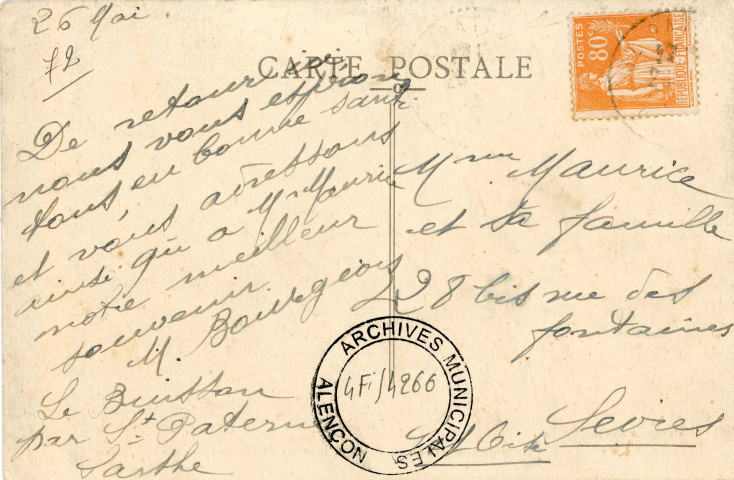 26 Mai
72
CARTE POSTALE
De retour ici
nous vous espérons
tous, en bonne santé
et vous adressons
ainsi qu'a Mr Maurice
notre meilleur
souvenir.
M Bourgeois
Le Buisson
par St Paterne
Sarthe
POSTES
80c
REPUBLIQUE FRANÇAISE
Mme Maurice
et sa famille
28 bis rue des
fontaines
Sevres
S et Oise
ARCHIVES MUNICIPALES
ALENÇON
4Fi/4266